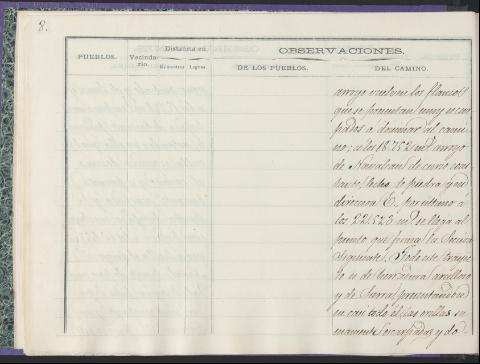 8.
PUEBLOS.
Vecinda-
rio.
Distancia en
Kilómetros Leguas.
OBSERVACIONES.
DE LOS PUEBLOS.
DEL CAMINO.
arroyo vuelven los flancos
que se presentan muy escar
pados á dominar al cami
no; a los 18.752 mṣ arroyo
de Navalcan de curso cons
tante, lecho de piedra y en
direccion E. por ultimo a
los 22.523 mṣ se llega al
punto que
siguiente. Todo este trayec
to es de herradura arcilloso
y de Sierra presentandose
en casi todo él las orillas su
mamente escarpadas y do-